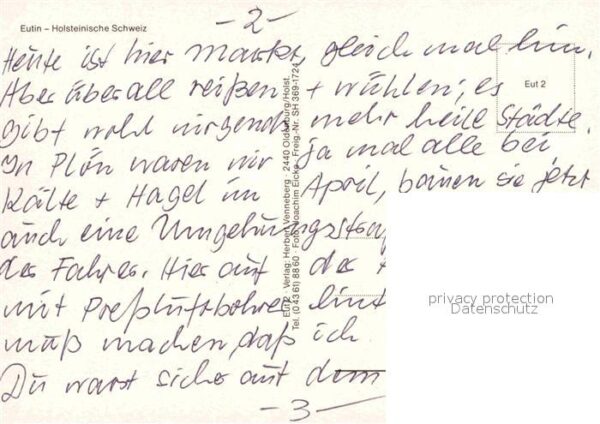 Eutin – Holsteinische Schweiz
-2-
Heute ist hier Markt, gleich mal hin.
Aber überall reißen + wühlen; es
gibt wohl nirgends mehr heile Städte.
In Plön waren wir ja mal alle bei
Kälte + Hagel im April, bauen sie jetzt
auch eine Umgehungsstraß
des Jahres. Hier auf der
mit Preßluftbohrer
muß machen, daß ich
Du warst sicher auf dem
-3-
Eut 2
Eut 2 · Verlag: Herbert Venneberg · 2440 Oldenburg/Holst.
Tel. (04361) 8860 · Foto: Joachim Eicke · Freig.-Nr. SH 369-172
privacy protection
Datenschutz